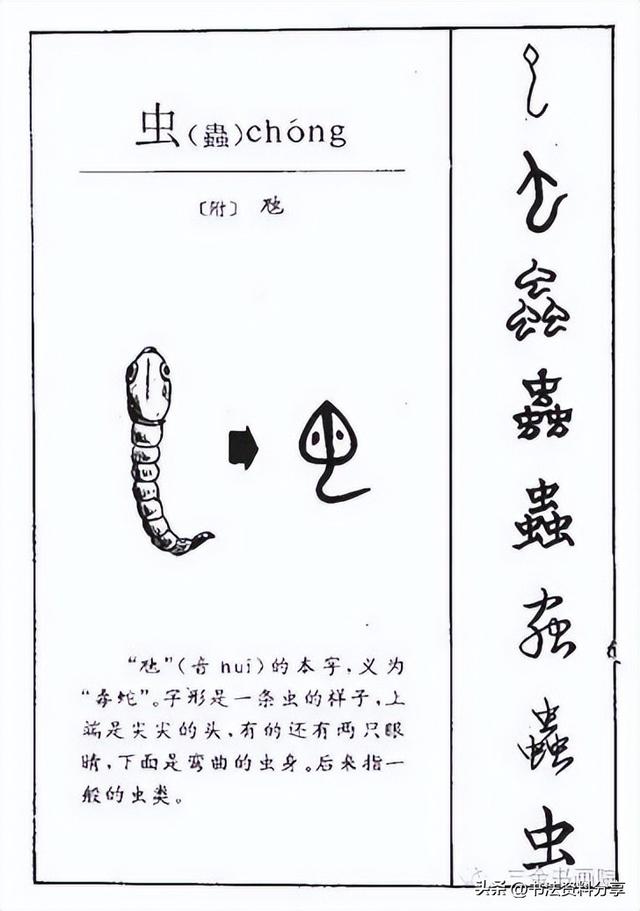 虫(蟲)chóng
〔附〕 虺
“虺”(音 huǐ)的本字,义为
“毒蛇”。字形是一条虫的样子,上
端是尖尖的头,有的还有两只眼
睛,下面是弯曲的虫身。后来指一
般的虫类。
蟲
蟲
蟲
蟲
虫
三金书画院
头条@书法资料分享